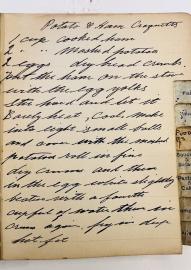 Potato & Ham Croquettes
1 cup cooked ham
2 " " Mashed potatoes
2 eggs dry bread crumbs
Put the ham on the stove
with the egg yolks
Stir hard and let it
Barely heat, Cool, make
into light small balls
and cover with the mashed
potatoes roll in fine
dry crumbs and then
in the egg white slightly
beaten with a fourth
cupful of water then in
crumbs again, fry in deep
hot fat